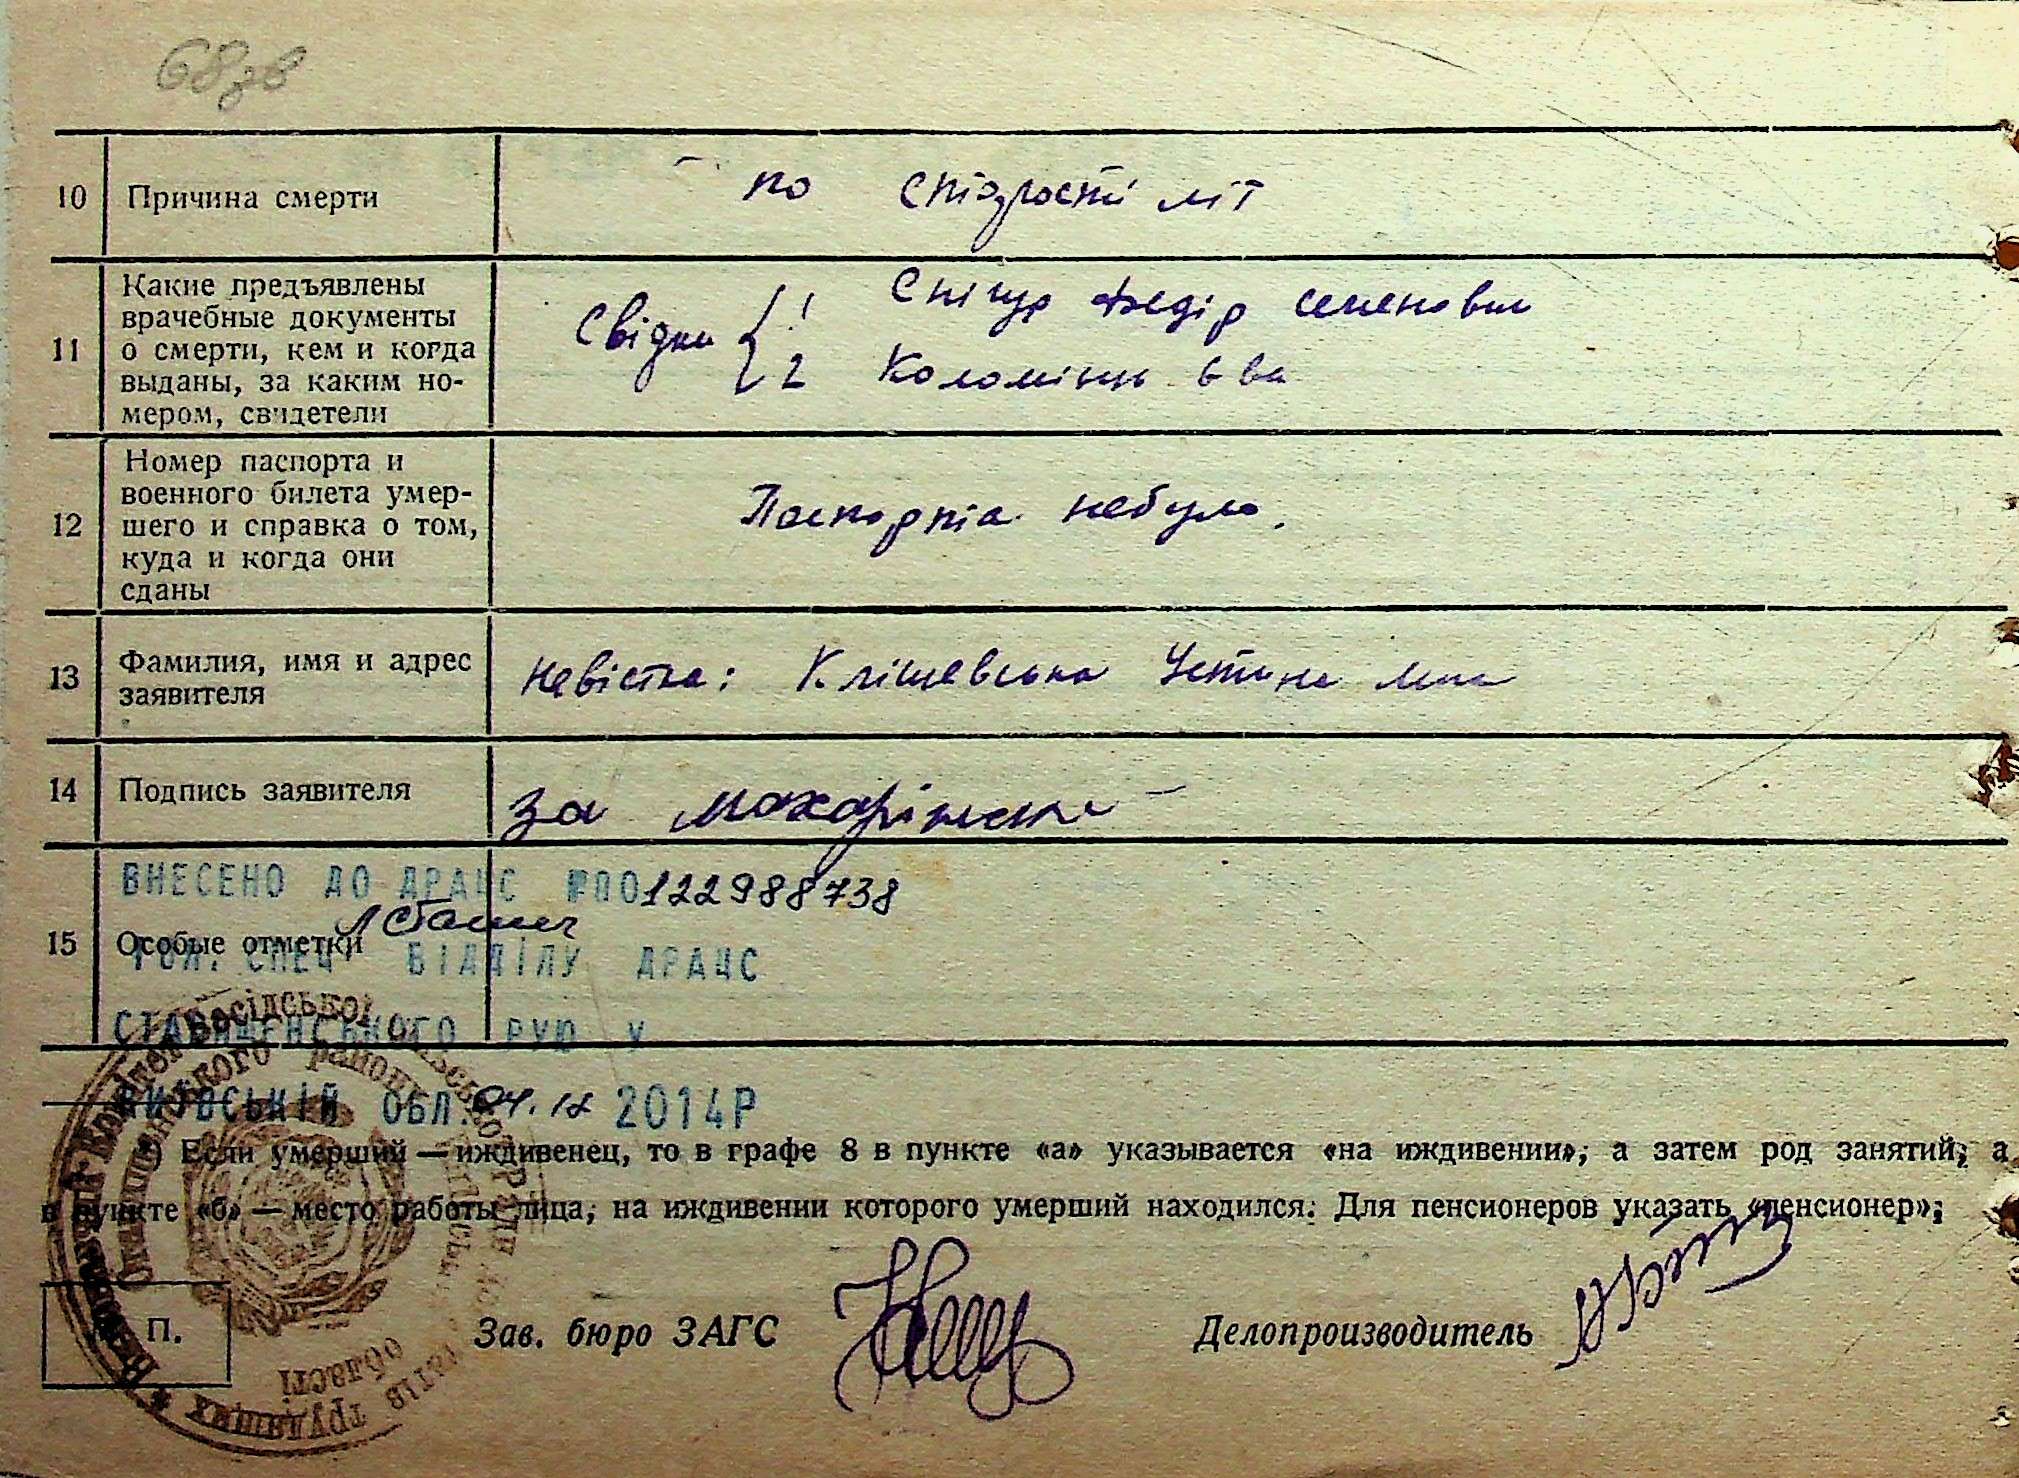 68зв
10 Причина смерти
по спідрості літ
11 Какие предъявлены
врачебные документы
о смерти, кем и когда
выданы, за каким но-
мером, свидетели
Свідки { 1 Федір Семенович
2 Коломієць Єва
12 Номер паспорта и
военного билета умер-
шего и справка о том,
куда и когда они
сданы
Паспорта небуло.
13 Фамилия, имя и адрес
заявителя
невістка: Клішевська Устина
14 Подпись заявителя
за
15 Особые отметки
ВНЕСЕНО ДО ДРАЦС №00122988738
ГОЛ. СПЕЦ ВІДДІЛУ ДРАЦС
СТАВИЩЕНСЬКОГО РУЮ У
КИЇВСЬКІЙ ОБЛ. 04.12 2014Р
*) Если умерший — иждивенец, то в графе 8 в пункте «а» указывается «на иждивении», а затем род занятий, а
в пункте «б» — место работы лица, на иждивении которого умерший находился. Для пенсионеров указать «пенсионер»;
П.
Зав. бюро ЗАГС
Делопроизводитель
трудящих
області